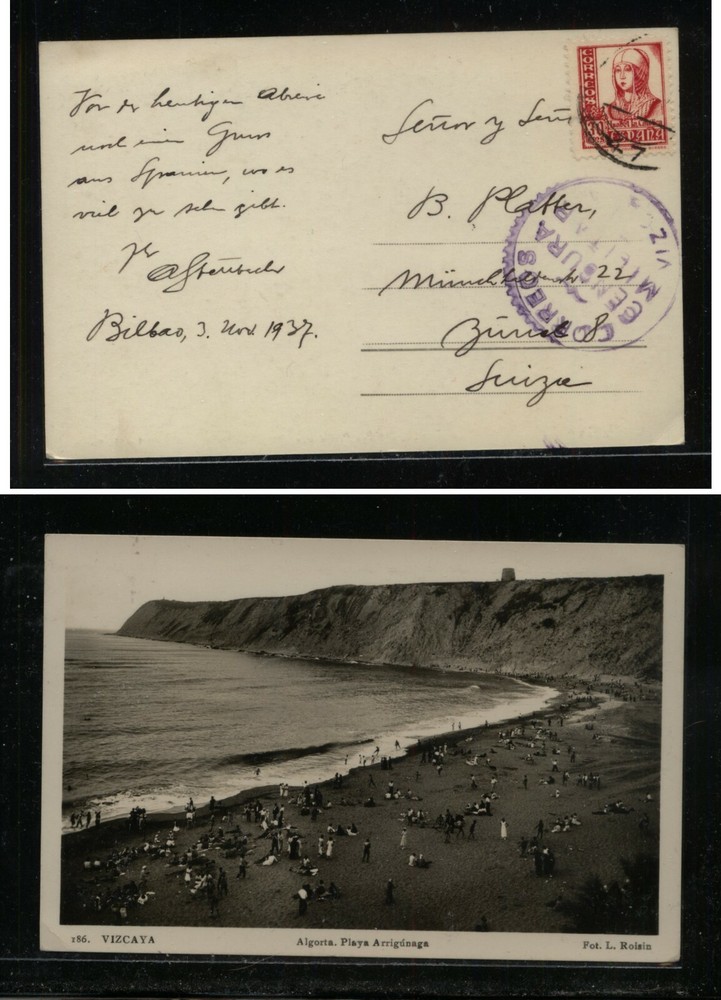 Vor der heutigen Abreise
noch einen Gruss
aus Spanien, wo es
viel zu sehn gibt.
Ihr
Bilbao, 3. Nov. 1937.
Señor y Señ
B. Platter,
22
Zürich 8.
Suiza
CORREOS
30
ESPAÑA
CORREOS
CENSURA
MILITAR
186. VIZCAYA
Algorta. Playa Arrigúnaga
Fot. L. Roisin